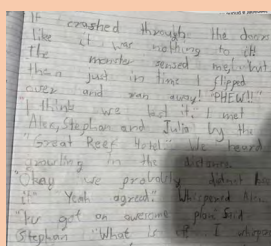 It crashed through the doors
like it was nothing to it!
the monster sensed me, but
then just in time I flipped
over and ran away! "PHEW!!"
I think we lost it. I met
Alex, Stephan and Julia by the
"Great Reef Hotel". We heard
growling in the distance.
"Okay we probably didnt
it" "Yeah agreed". Whispered
got an awesome plan" Said
Stephan "What is it" I